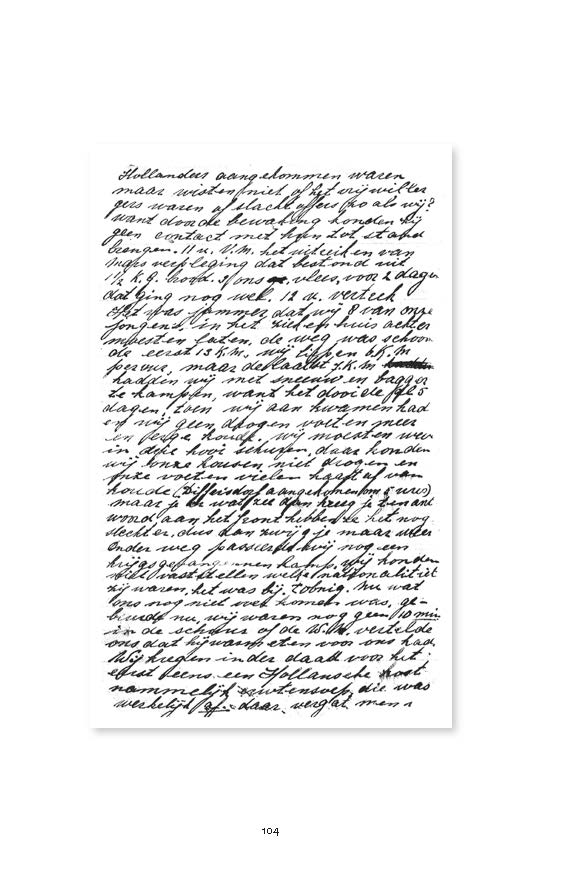 Hollanders aangekommen waren
maar wisten niet of het vrijwilli
gers waren of slachtoffers (zo als wij?
want door de bewaking konden wij
geen contact met hun tot stand
brengen. 11 u. V.M. het uitreiken van
mars verpleging dat bestond uit
1½ K.G. brood. 3 ons vlees, voor 2 dagen
dat ging nog wel. 12 u. vertrek
Het was jammer dat wij 8 van onze
jongens, in het ziekenhuis achter
moesten laten, de weg was schoon
de eerst 13 K.M. wij liepen 6 K.M
per uur, maar de laatst 7. K.M
hadden wij met sneeuw en bagger
te kampen, want het dooide al 5
dagen, toen wij aan kwamen had
en wij geen drogen voeten meer
en koude. wij moesten weer
in deze hooi schuren, daar konden
wij onze kousen niet drogen en
onze voeten vielen haast af van
koude (Differsdorf aangekomen om 5 uur)
maar je wat zee dan kreeg je ten ant
woord, aan het front hebben ze het nog
slechter, dus dan zwijg je maar weer
Onder weg passeerde wij nog een
krijgsgevangennen kamp, wij konden
niet vast stellen welke nationaliteit
zij waren, het was bij Zobnig. Nu wat
ons nog niet over komen was, ge-
beurde nu, wij waren nog geen 10 min
in de schuur of de W.M. vertelde
ons dat hij warm eten voor ons had.
Wij kregen in der daad voor het
eerst eens een Hollansche kost
nammelijk erwtensoep, die was
werkelijk af. daar vergat men
104